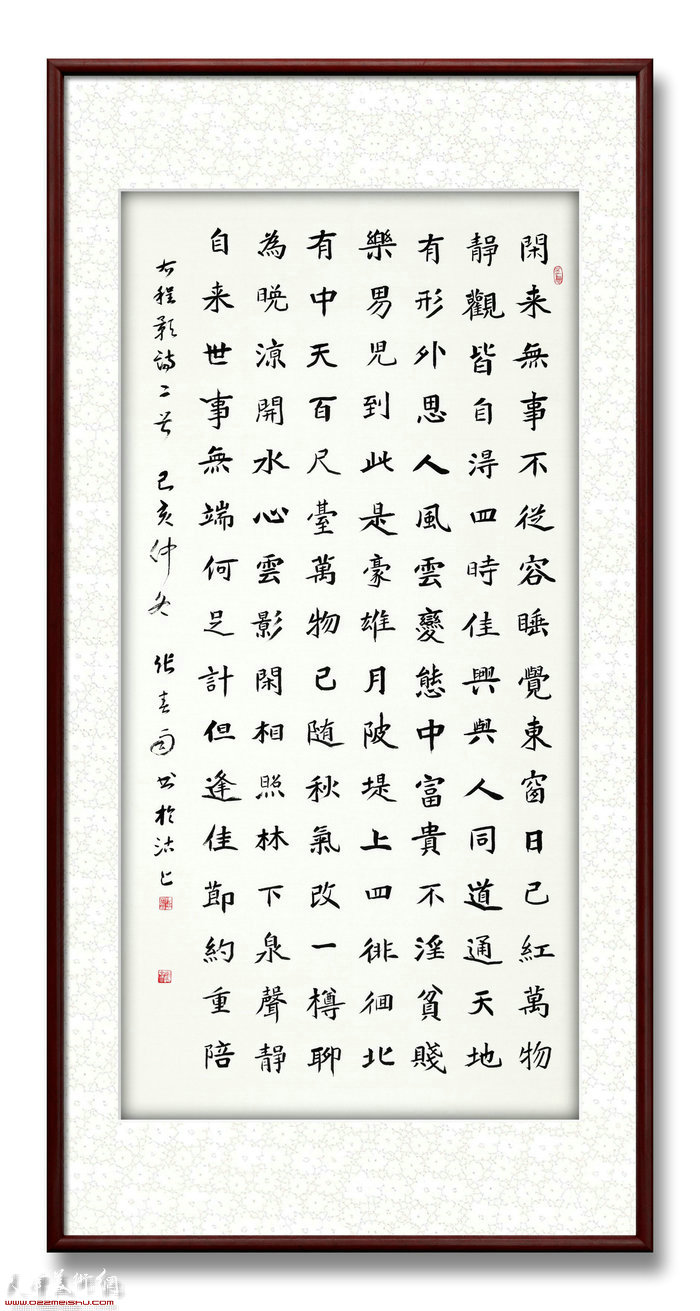 閑来無事不從容睡覺東窗日已紅萬物
靜觀皆自得四時佳興與人同道通天地
有形外思人風雲變態中富貴不淫貧賤
樂男児到此是豪雄月陂堤上四徘徊北
有中天百尺臺萬物已随秋氣改一樽聊
為晚涼開水心雲影閑相照林下泉聲靜
自来世事無端何足計但逢佳節約重陪
右程颢詩二首 己亥仲冬 张 雨书於沽上
天津美術網
www.022meishu.com